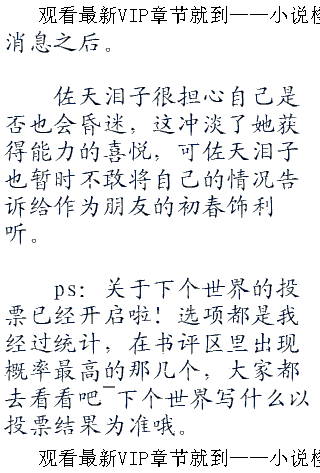 观看最新VIP章节就到——小说
消息之后。
佐天泪子很担心自己是
否也会昏迷，这冲淡了她获
得能力的喜悦，可佐天泪子
也暂时不敢将自己的情况告
诉给作为朋友的初春饰利
听。
ps：关于下个世界的投
票已经开启啦！选项都是我
经过统计，在书评区里出现
概率最高的那几个，大家都
去看看吧~下个世界写什么以
投票结果为准哦。
观看最新VIP章节就到——小说